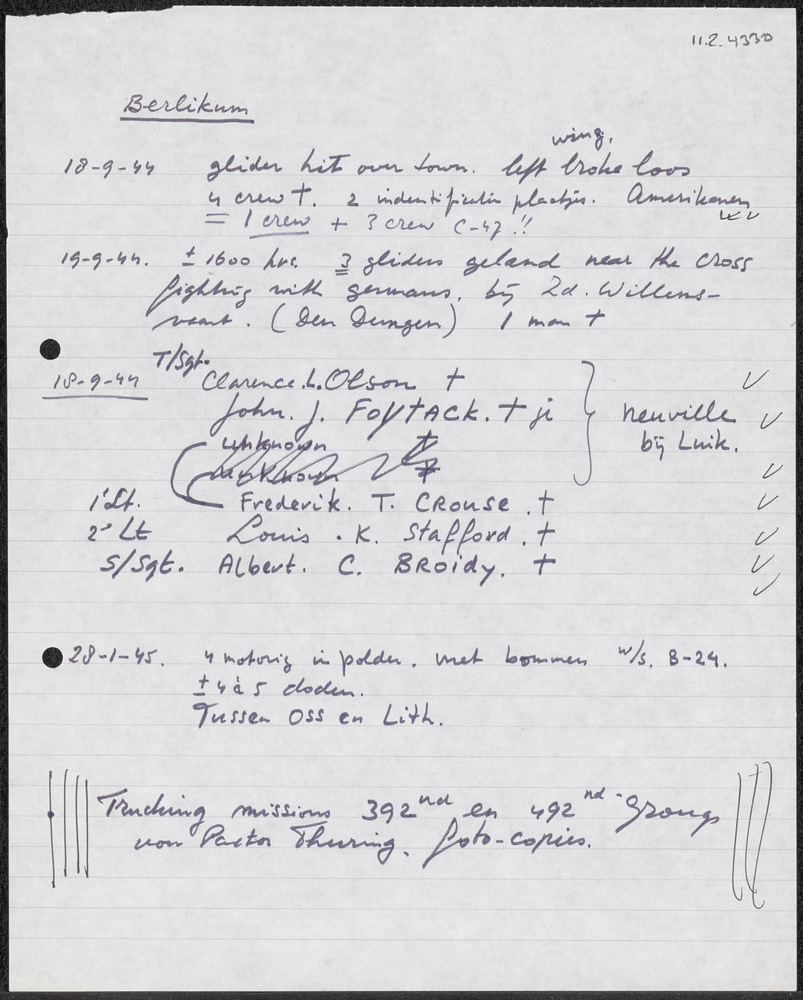 11.2.4330
Berlikum
wing.
18-9-44 glider hit over town. left broke loos
4 crew †. 2 indentificatie plaatjes. Amerikanen
= 1 crew + 3 crew C-47 !!
19-9-44. ± 1600 hrs. 3 gliders geland near the cross
fighting with germans. bij Zd. Willems-
vaart. (Den Dungen) 1 man †
T/Sgt.
18-9-44 Clarence. L. Olson †
John. J. FoytACK. † neuville
unknown † bij Luik.
unknown †
1e Lt. Frederik. T. CRouse . †
2e Lt Louis . K. Stafford . †
S/Sgt. Albert. C. BRoidy. †
28-1-45. 4 motorig in polder. met bommen w/s. B-24.
± 4 à 5 doden.
Tussen Oss en Lith.
Trucking missions 392nd en 492nd- Groups
van Pastor Thuring. foto-copies.